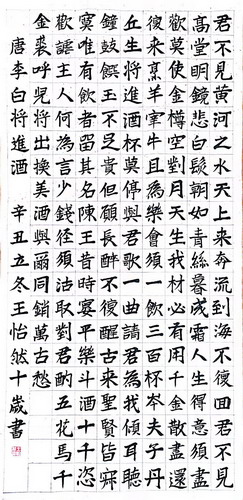 君不見黃河之水天上來奔流到海不復回君不見
高堂明鏡悲白髮朝如青絲暮成雪人生得意須盡
歡莫使金樽空對月天生我材必有用千金散盡還
復來烹羊宰牛且為樂會須一飲三百杯岑夫子丹
丘生將進酒杯莫停與君歌一曲請君為我傾耳聽
鐘鼓饌玉不足貴但願長醉不復醒古來聖賢皆寂
寞唯有飲者留其名陳王昔時宴平樂斗酒十千恣
歡謔主人何為言少錢徑須沽取對君酌五花馬千
金裘呼兒將出換美酒與爾同銷萬古愁
唐李白將進酒 辛丑立冬王怡然十歲書